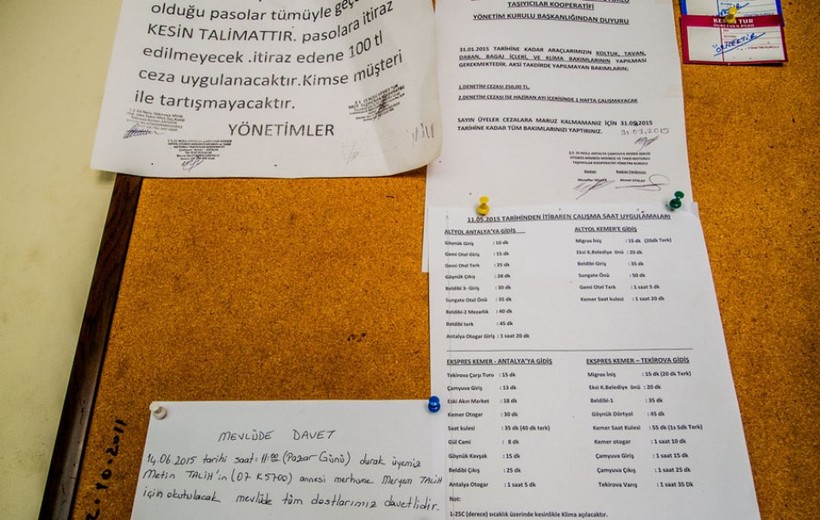 olduğu pasolar tümüyle geç
KESİN TALİMATTIR. pasolara itiraz
edilmeyecek .itiraz edene 100 tl
ceza uygulanacaktır.Kimse müşteri
ile tartışmayacaktır.
YÖNETİMLER
TAŞIYICILAR KOOPERATİFİ
YÖNETİM KURULU BAŞKANLIĞINDAN DUYURU
31.01.2015 TARİHİNE KADAR ARAÇLARIMIZIN KOLTUK, TAVAN,
DABAN, BAGAJ İÇLERİ, VE KLİMA BAKIMLARININ YAPILMASI
GEREKMEKTEDİR. AKSİ TAKDİRDE YAPILMAYAN BAKIMLARIN;
1.DENETİM CEZASI 250,00 TL,
2.DENETİM CEZASI İSE HAZİRAN AYI İÇERİSİNDE 1 HAFTA ÇALIŞMAYACAK
SAYIN ÜYELER CEZALARA MARUZ KALMAMANIZ İÇİN 2015
TARİHİNE KADAR TÜM BAKIMLARINIZI YAPTIRINIZ.
11.05.2015 TARİHİNDEN İTİBAREN ÇALIŞMA SAAT UYGULAMALARI
ALTYOL ANTALYA'YA GİDİŞ
Göynük Giriş : 10 dk
Gemi Otel Giriş : 15 dk
Gemi Otel Terk : 25 dk
Göynük Çıkış : 28 dk
Beldibi 3- Giriş : 30 dk
Sungate Otel Önü : 35 dk
Beldibi-2 Mezarlık : 40 dk
Beldibi terk : 45 dk
Antalya Otogar Giriş : 1 saat 20 dk
ALTYOL KEMER'E GİDİŞ
Migros İniş : 15 dk (20dk Terk)
Eksi K.Belediye önü : 20 dk
Beldibi Giriş : 35 dk
Sungate Önü : 50 dk
Gemi Otel Terk : 1 saat 5 dk
Kemer Saat kulesi : 1 saat 20 dk
EKSPRES KEMER - ANTALYA'YA GİDİŞ
Tekirova Çarşı Turu : 15 dk
Çamyuva Giriş : 13 dk
Eski Akın Market : 18 dk
Kemer Otogar : 30 dk
Saat kulesi : 35 dk (40 dk terk)
Gül Cami : 8 dk
Göynük Kavşak : 15 dk
Beldibi Çıkış : 25 dk
Antalya Otogar : 1 saat 5 dk
Not:
1-25C (derece) sıcaklık üzerinde kesinlikle Klima açılacaktır.
EKSPRES KEMER – TEKİROVA GİDİŞ
Migros İniş : 15 dk (20 dk Terk)
Eksi K.Belediye önü : 20 dk
Beldibi-1 : 35 dk
Göynük Dörtyol : 45 dk
Kemer Saat Kulesi : 55 dk (1s 5dk Terk)
Kemer otogar : 1 saat 10 dk
Çamyuva Giriş : 1 saat 15 dk
Çamyuva Çıkış : 1 saat 25 dk
Tekirova Varış : 1 saat 35 Dk
MEVLÜDE DAVET
14.06.2015 tarihi saat: 11.00 (Pazar Günü) durak üyemiz
Metin TALİH'in (07 K5700) annesi merhume Meryem TALİH
için okutulacak mevlüde tüm dostlarımız davetlidir.
10.2011